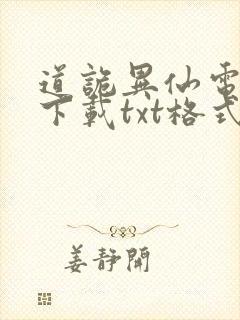 道詭異仙電
下載txt格式
姜靜閒